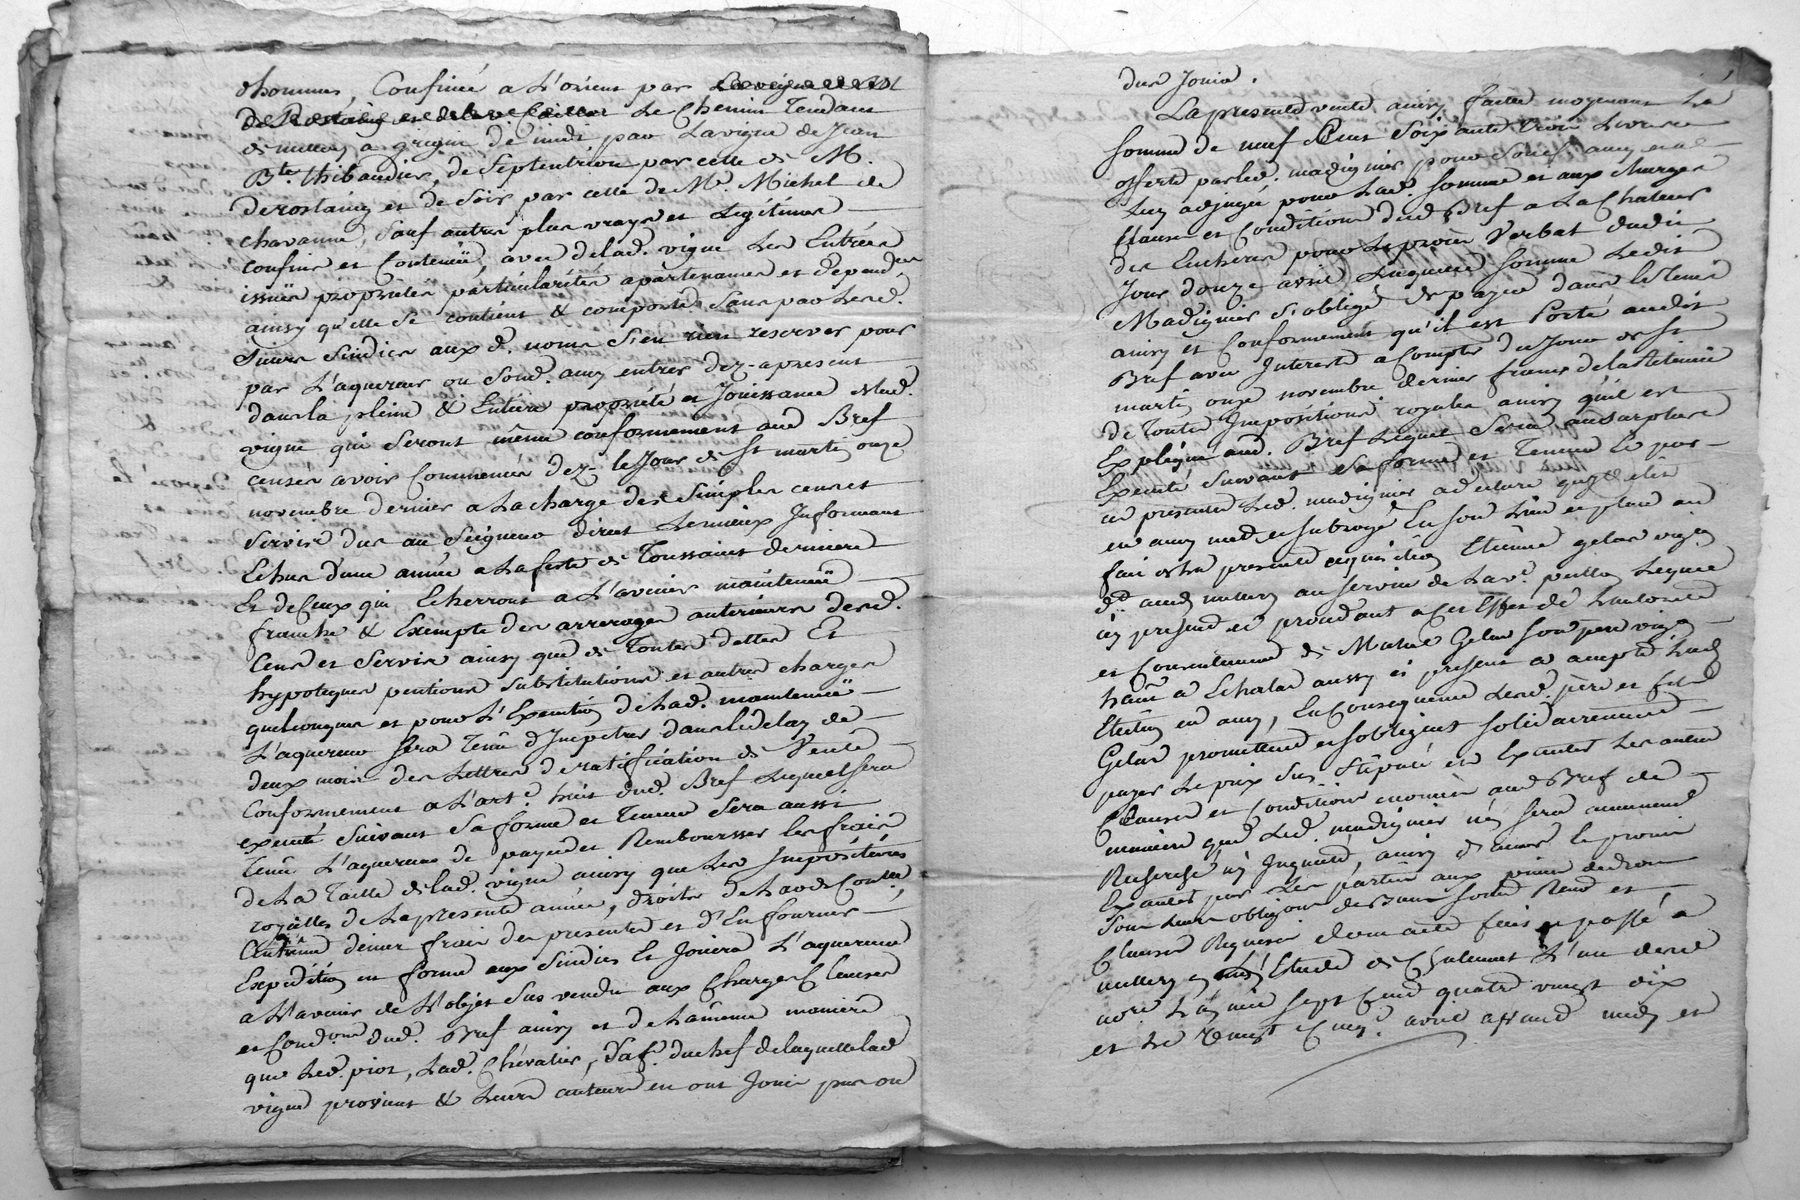 d'hommes, Confiné a L'orient par
Le Chemin Tendant
de millery a grigni de midi par La vigne de Jean
Bte. thibaudier, de Septentrion par celle de M.
derostaing et de Soir par celle de Me. Michel de
chavanne, Sauf autres plus vrays et Legitimes
confins et Contenüe, avec delad. vigne Les Entrées
issües proprietés particularités apartenances et dépend.ces
ainsy qu'elle Se contient & comporte Sans par Lesd.
Sindics aux d. noms S'en rien reserver pour
par L'aquereur ou Sond. amy entrer dez-apresent
dans la pleine & Entiere propriété et Jouissance delad.
vigne qui Seront même conformement aud Bref
censés avoir Commencés dez-le Jour de St martin onze
novembre dernier a La charge des Simples cens et
Servis dus au Seigneur direct Le mieux Informant
Echus d'une année a La feste de Toussaint derniere
Et de Ceux qui Echerront a L'avenir maintenüe
franche & Exempte des arrerages anterieurs desd.
Cens et Servis ainsy que de Toutes dettes Et
hypoteques pentions Substitutions et autres charges
quelconques et pour L'Execution de Lad. maintenüe
L'aquereur Sera Tenu d'Impetrer dans le delay de
deux mois des Lettres de ratification de Vente
Conformement a L'art.e huit dud. Bref Lequel sera
executé Suivant Sa forme et Teneur Sera aussi
Tenu L'aquereur de payer et Rembourser les frais
de La Taille de lad. vigne ainsy que Les Impositions
royalles de La presente année, droits de Lods
Centieme denier frais des presentes et d'En fournir
Expedition en forme aux Sindics Et Jouira L'aquereur
a L'avenir de L'objet Sus vendu aux Charges Clauses
et Conditions dud. Bref ainsy et de La même maniere
que Led. piot, Lad. Chevalier, du chef delaquelle lad
vigne provient & Leurs auteurs en ont Joui pu ou
du Jouir.
La presente vente ainsy faitte moyenant La
Somme de neuf Cent Soixante trois Livres
offerte par led. madignier pour Sond. amy et a
Luy adjugé pour Lad. Somme et aux charges
Clauses et Conditions dud Bref a La Chaleur
des Encheres pour Le procès Verbal dudit
Jour douze avril Laquelle Somme Ledit
Madignier S'oblige de payer dans le Tems
ainsy et Conformement qu'il est Porté audit
Bref avec Interest a Compter du Jour de St
martin onze novembre dernier francs de la retenüe
de Toutes Impositions royales ainsy qu'il est
Expliqué aud. Bref Lequel Sera au Surplus
Executé Suivant Sa forme et Teneur Et par
ces presentes Led. madignier a declaré qu'il elit
en amy nomme et subroge En son Lieu et place au
fait de la presente acquisition Etienne gelas
aud millery au service de La ve. Lequel
icy present et procedant a ces Effets de L'autorité
et Consentement de Michel Gelas Son pere
hant a Echalas aussy ici present a accepté Lad
Election en amy, En Consequence Lesd. père et fils
Gelas promettent et sobligent Solidairement
payer Le prix Sus Stipulé et Executer Les autres
Clauses et Conditions enoncées aud Bref de
maniere que Led. madignier n'en Sera aucunement
Recherché ny Inquieté, ainsy
par Les parties aux peines de droit
Sous Leurs obligations de
Clauses Requises dont acte fait et passé a
millery en Etude de Chulement L'un desd
nore. L'an mil Sept Cent quatre vingt dix
et Le vingt Cinq. avril avant midy et